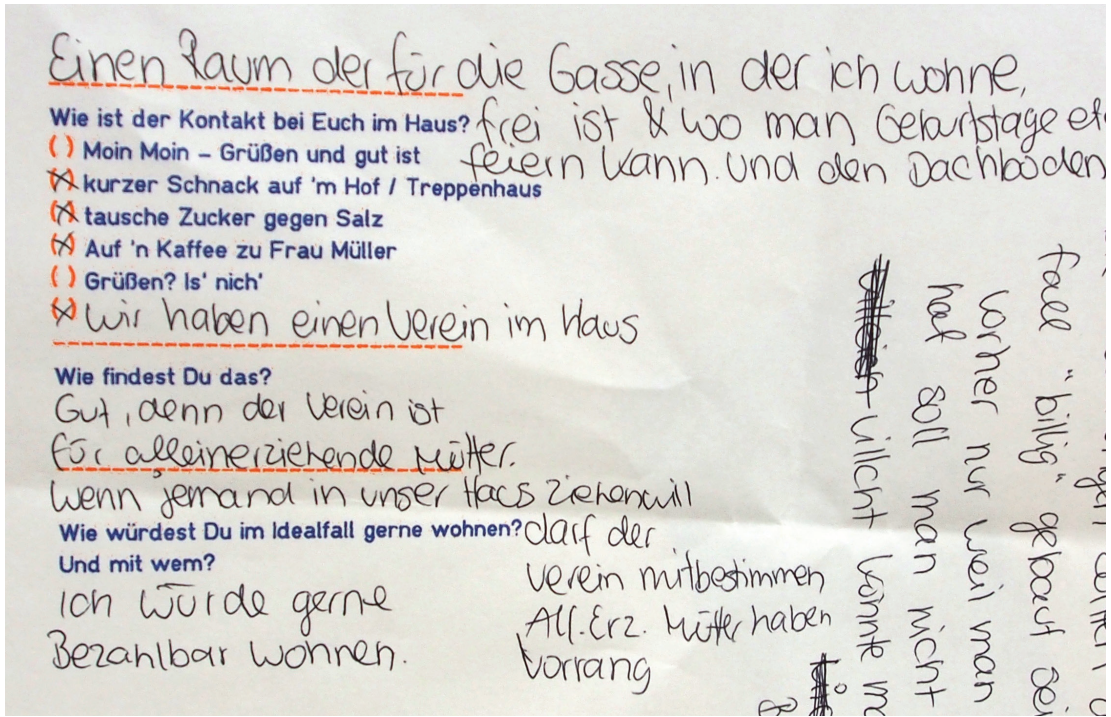 Einen Raum der für die Gasse, in der ich wohne,
frei ist & wo man Geburtstage
feiern kann. Und den Dachboden
Wie ist der Kontakt bei Euch im Haus?
( ) Moin Moin – Grüßen und gut ist
(X) kurzer Schnack auf 'm Hof / Treppenhaus
(X) tausche Zucker gegen Salz
(X) Auf 'n Kaffee zu Frau Müller
( ) Grüßen? Is' nich'
(X) wir haben einen Verein im Haus
Wie findest Du das?
Gut, denn der Verein ist
für alleinerziehende Mütter.
Wenn jemand in unser Haus ziehen will
darf der
Verein mitbestimmen
All. Erz. Mütter haben
Vorrang
Wie würdest Du im Idealfall gerne wohnen?
Und mit wem?
Ich würde gerne
Bezahlbar wohnen.
fall "billig" gebaut
vorher nur weil man
hat soll man nicht
villcht könnte